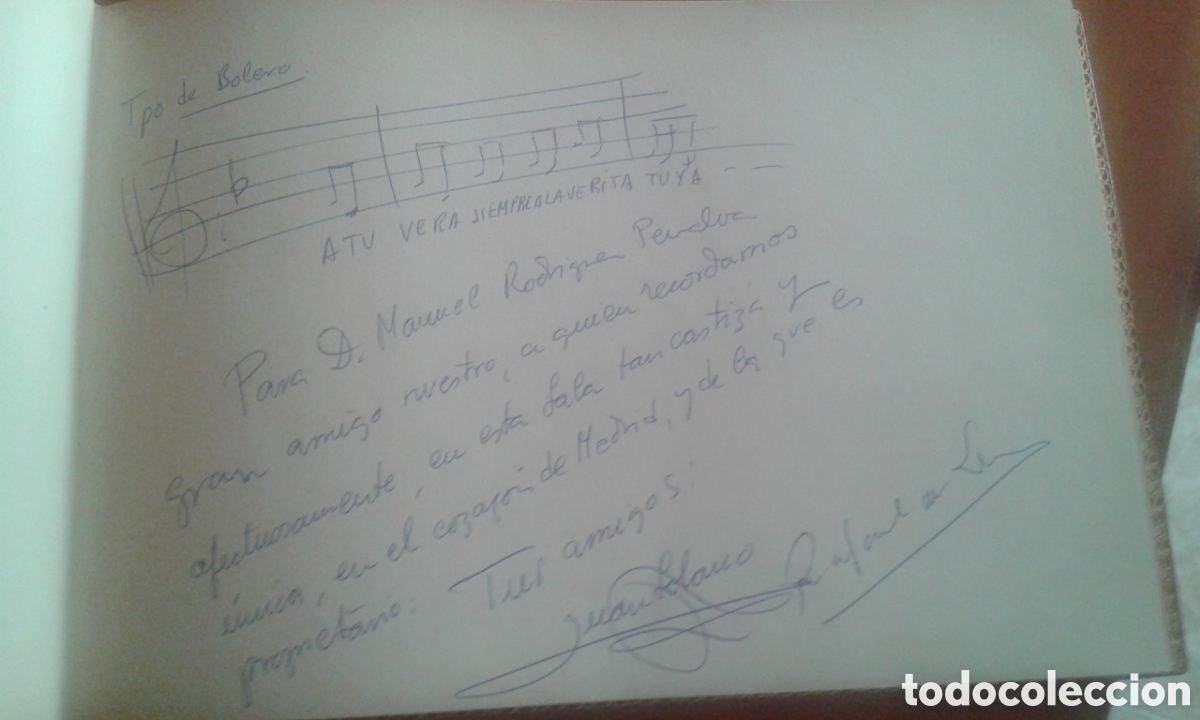 Tpo de Bolero.
A TU VERA SIEMPRE A LA VERITA TUYA - -
Para D. Manuel Rodriguez Penalva
gran amigo nuestro, a quien recordamos
afectuosamente, en esta Sala tan castiza y
única, en el corazón de Madrid, y de la que es
propietario: Tus amigos:
Juan Solano Rafael de León
todocoleccion